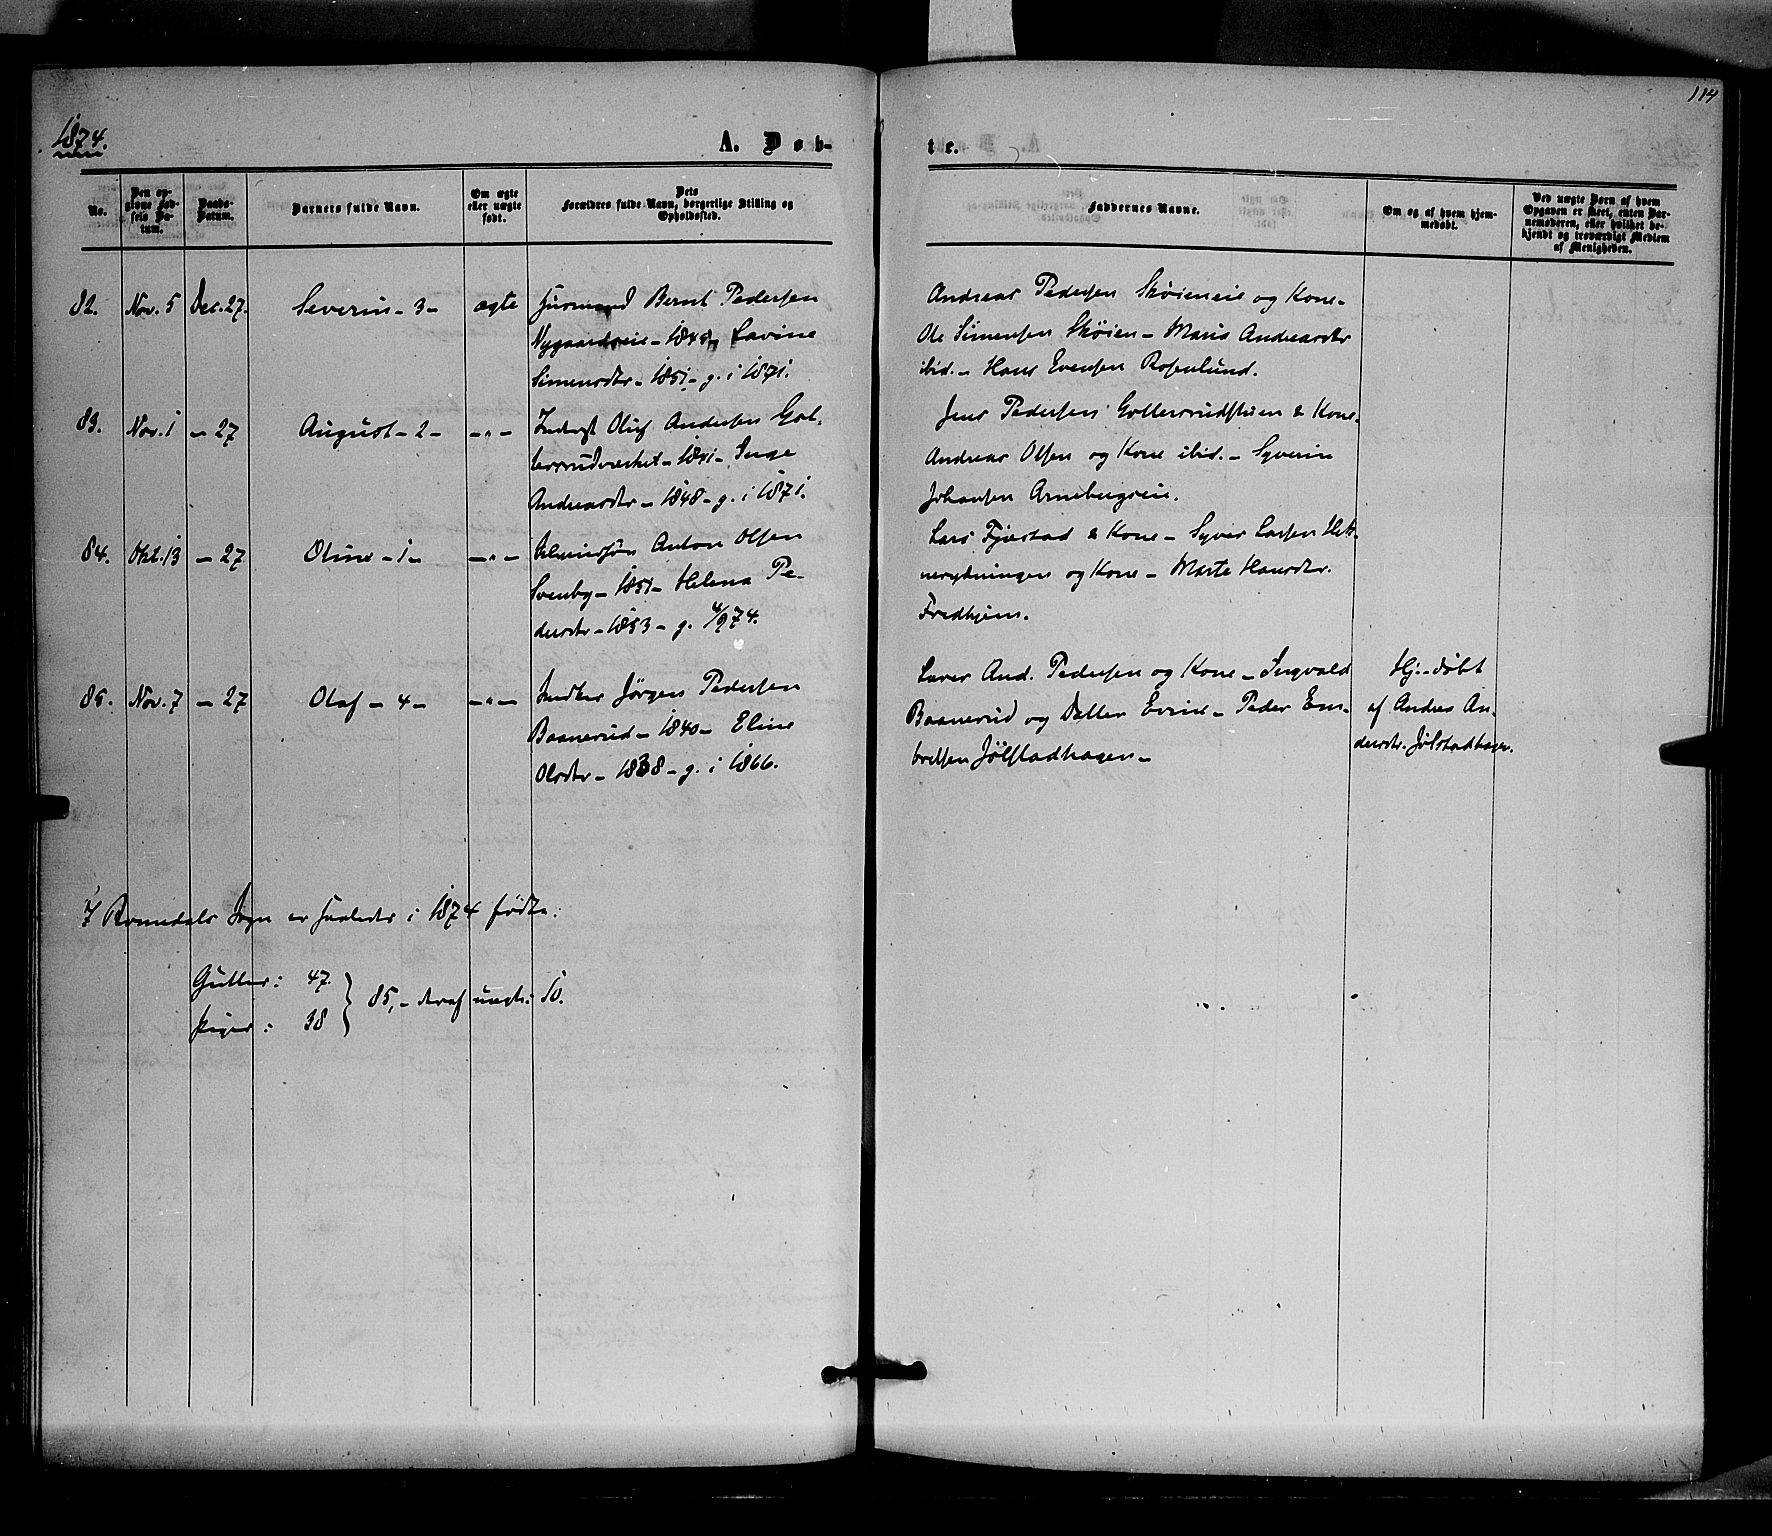 114
1874.
A. Døb-
te.
No.
Den op-
givne Fød-
sels Da-
tum.
Daabs-
Datum.
Barnets fulde Navn.
Om ægte
eller uægte
født.
Dets
Forældres fulde Navn, borgerlige Stilling og
Opholdssted.
Faddernes Navne.
Om og af hvem hjem-
medøbt.
Ved uægte Børn af hvem
Opgaven er skeet, enten Bar-
nemoderen, eller hvilket be-
kjendt og troværdigt Medlem
af Menigheden.
82. Nov. 5 Dec. 27. Severin - 3 - ægte Husmand Bernt Pedersen
Nygaardseie - 1845, Lavine
Simensdtr - 1851 - g. i 1871.
Andreas Pedersen Skøieneie og Kone -
Ole Simensen Skøien - Maris Andreasdtr
ibid. - Hans Evensen Rosenlund.
83. Nov. 1 - 27 August - 2 - - " - Inderst Oluf Andersen Gol-
lerrudverket - 1841 - Inge
Andreasdtr - 1848 - g. i 1871.
Jens Pedersen Gollerrudstuen & Kone -
Andreas Olsen og Kone ibid. - Syverin
Johansen Arnebergseie.
84. Okt. 13 - 27 Oline - 1 - - " - Anton Olsen
Svenby - 1851 - Helena Pe-
dersdtr - 1853 - g. 4/9 74.
Lars Fjæstad & Kone - Syver Larsen
og Kone - Marte Hansdtr.
Fredhjem.
85. Nov. 7 - 27 Olaf - 4 - - " - Snedker Jørgen Pedersen
Baanerud - 1840 - Eline
Olsdtr - 1838 - g. i 1866.
And. Pedersen og Kone - Ingvald
Baanerud og Datter Evine - Peder Em-
bretsen Jølstadhagen -
Hj.-døbt
af Andrea An-
dersdtr. Jølstadhagen.
I Romedals Sogn er saaledes i 1874 fødte:
Gutter: 47.
Piger: 38
85, - deraf uægte: 10.